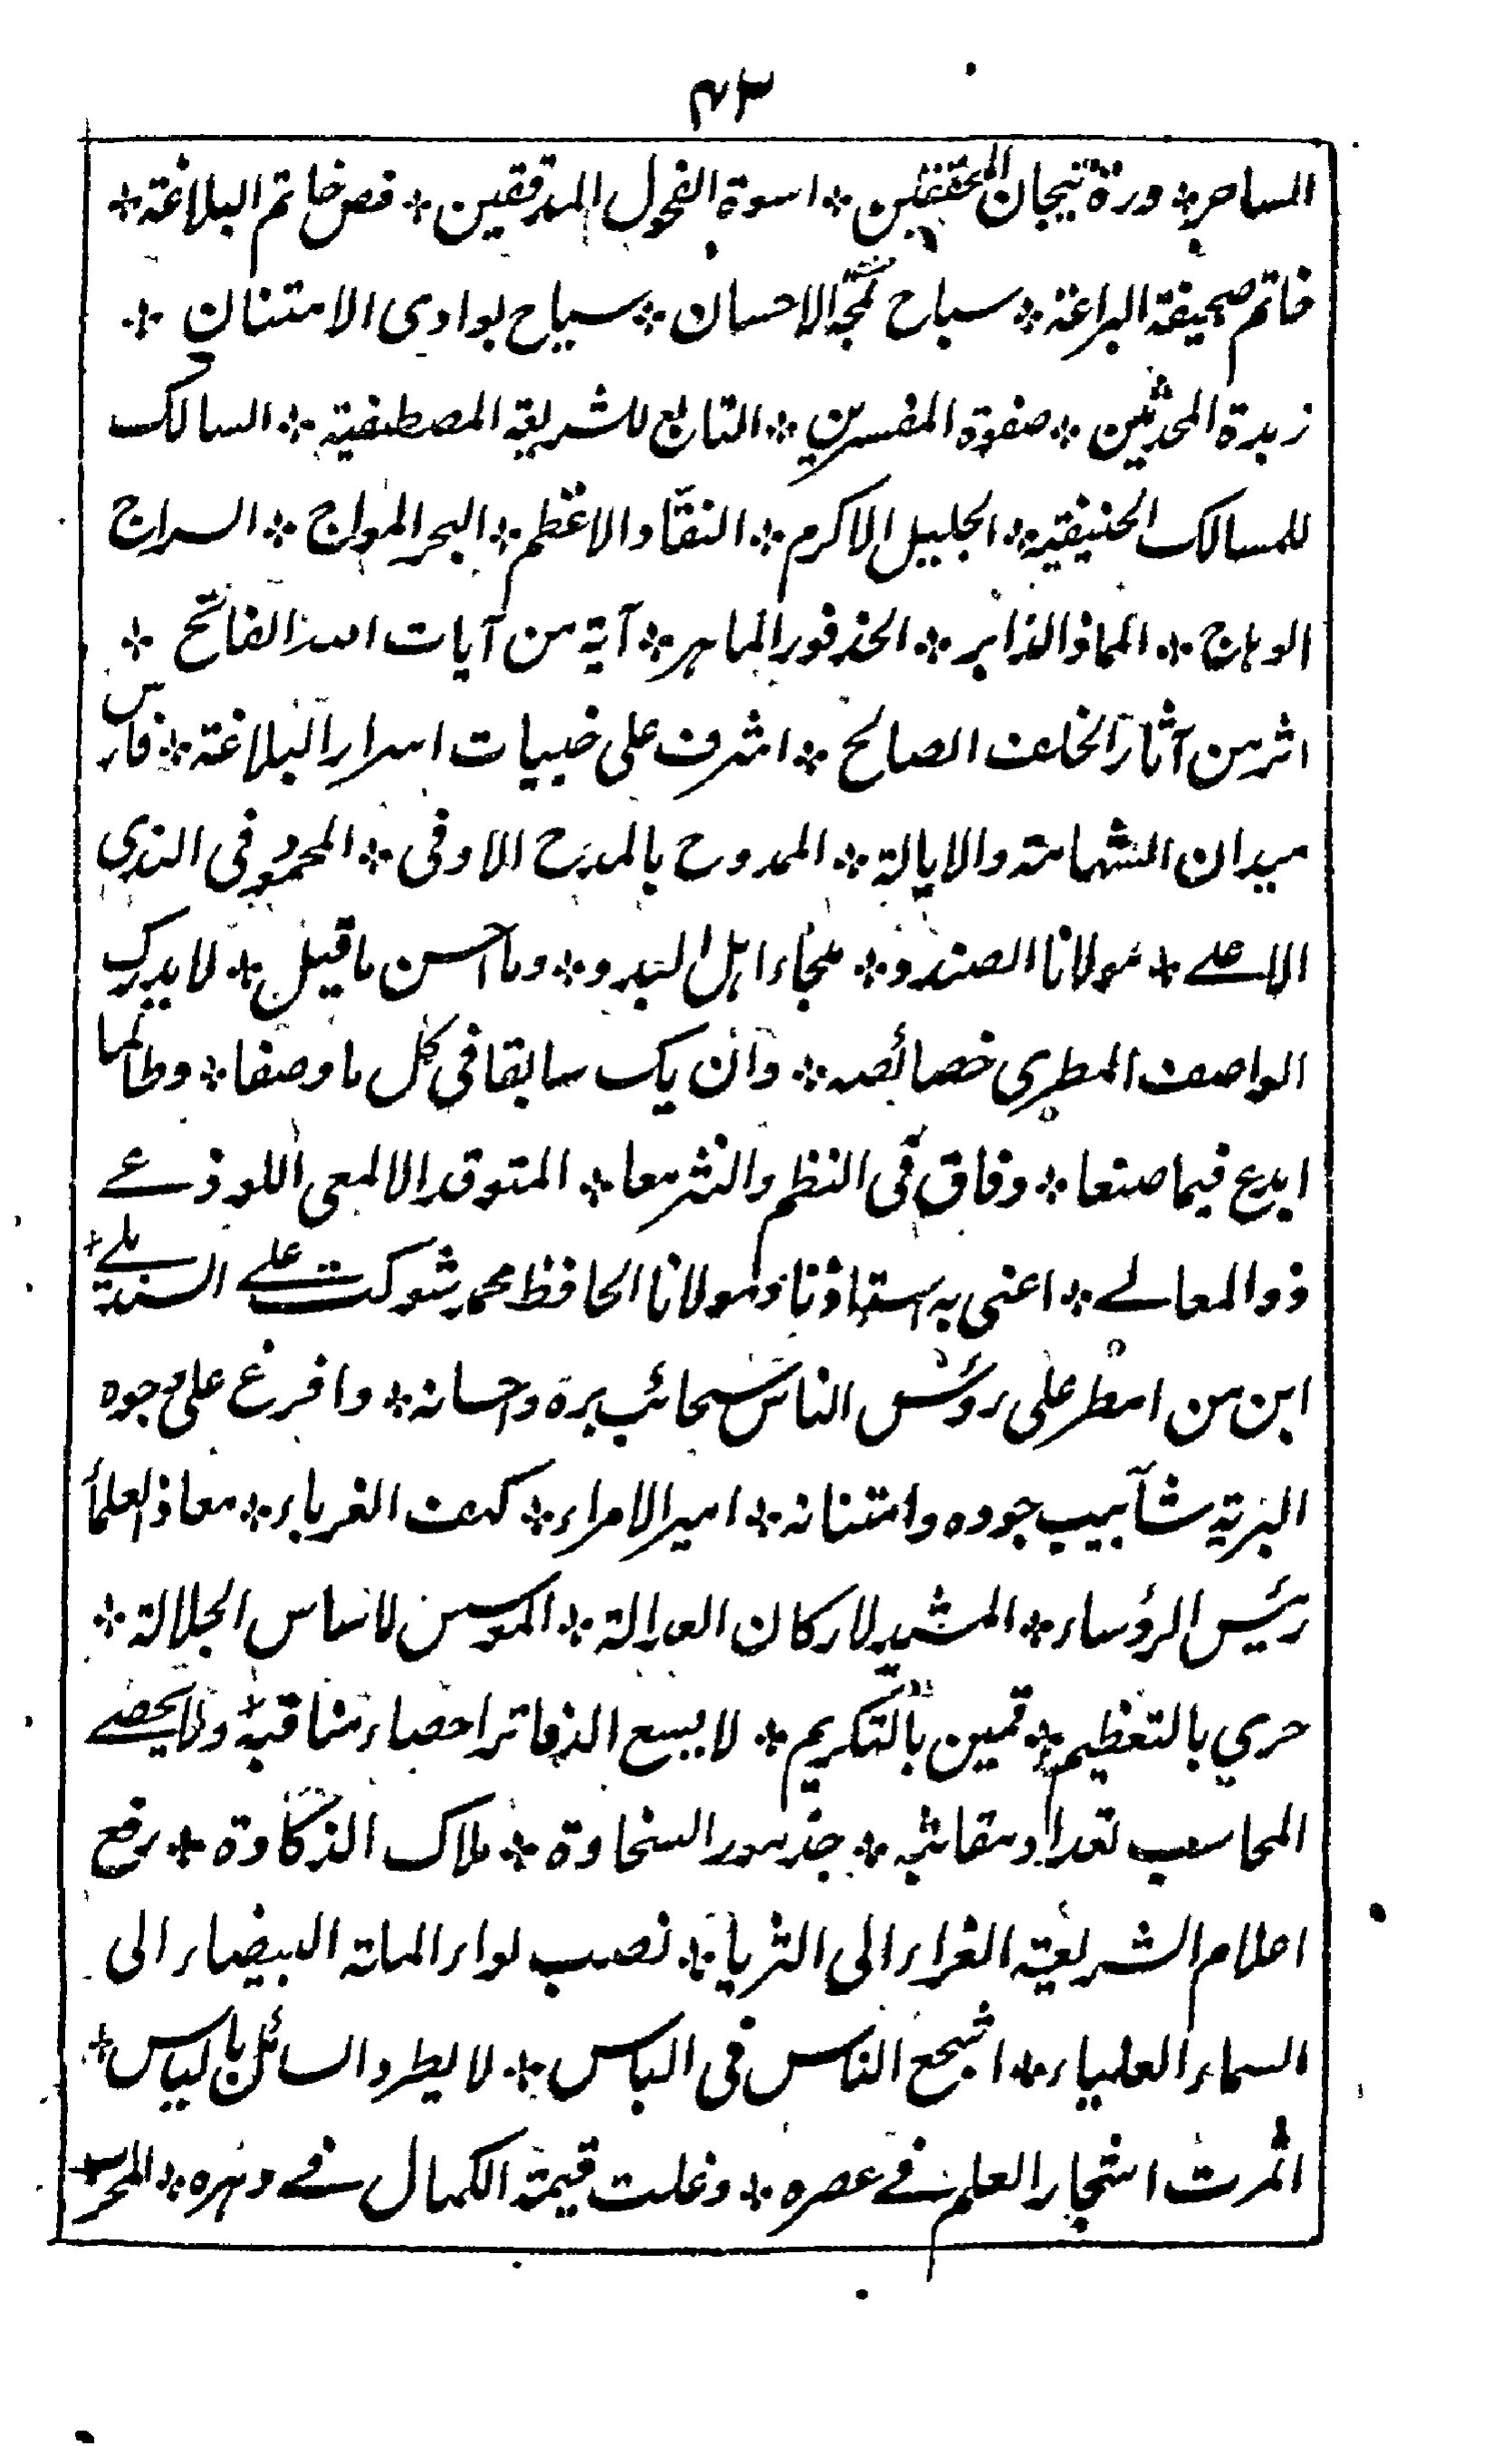 ۴۳
الساحر * درة تيجان المحققين * اسوة الفحول المدققين * فص خاتم البلاغة *
خاتم صحيفة البراعة * سباح لجة الاحسان * سياح بوادى الامتنان *
زبدة المحدثين * صفوة المفسرين * التابع للشريعة المصطفية * السالک
للمسالک الحنيفية * الجليل الاكرم * النقاد الاعظم * البحر المواج * السراج
الوہاج * الماذ الذابر * الحذفور الماہر * آية من آيات اللہ الفاتح *
اثر من آثار الخلف الصالح * اشرف على خبيات اسرار البلاغة * فارس
ميدان الشهامة والايالة * الممدوح بالمدح الاوفى * المحمود فى الندى
الاعلے * مولانا الصندو * ملجاء اہل البدو * وما احسن ما قيل * لا يدرک
الواصف المطرى خصائصہ * وان يک سابقا فى كل ما وصفا * وطالما
ابدع فيما صنعا * وفاق فى النظم والنثر معا * المتوقد الالمعى اللوذعے
ذو المعالے * اعنى بہ استاذنا ومولانا الحافظ محمد شوکت علے السنديلے *
ابن من امطر على رؤس الناس سحائب برہ واحسانہ * وافرغ على وجوہ
البرية شآبيب جودہ وامتنانہ * امير الامراء * کہف الغرباء * معاذ العلمأ
رئيس الرؤساء * المشيد لارکان العدالة * الموسس لاساس الجلالة *
حري بالتعظيم * قمين بالتكريم * لا يسع الدفاتر احصاء مناقبہ ولا يحصے
المحاسب تعداد مقانبہ * جذمور السخاوة * ملاک الذکاوة * رفع
اعلام الشريعة الغراء الى الثريا * نصب لواء الملة البيضاء الى
السماء العلياء * اشجع الناس فى الباس * لا يطرد السائل بالياس *
اثمرت اشجار العلم فے عصرہ * وغلت قيمة الكمال فے دہرہ *